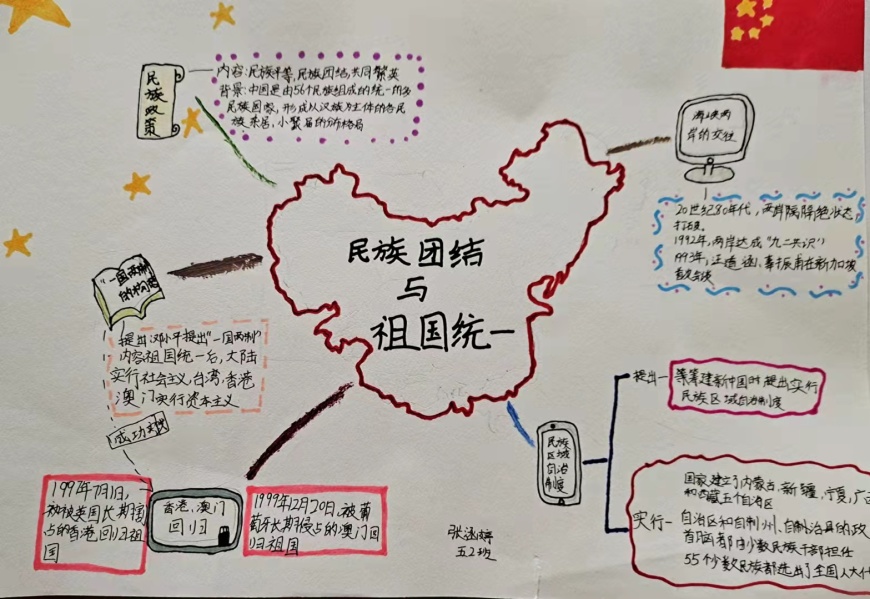 民族政策
内容:民族平等,民族团结,共同繁荣
背景:中国是由56个民族组成的统一的多
民族国家,形成以汉族为主体的各民
族杂居,小聚居的分布格局
海峡两
岸的交往
20世纪80年代,两岸隔绝状态,
打破。
1992年,两岸达成“九二共识”
1993年,汪道涵、辜振甫在新加坡
首次会谈
民族团结
与
祖国统一
“一国两制”
的构想
提出:邓小平提出“一国两制”
内容祖国统一后,大陆
实行社会主义,台湾,香港
澳门实行资本主义
成功实践
香港、澳门
回归
1997年7月1日,
被英国长期侵
占的香港回归祖
国
1999年12月20日,被葡
萄牙长期侵占的澳门回
归祖国
民族
区域
自治
制度
提出一
筹建新中国时提出实行
民族区域自治制度
实行一
国家建立了内蒙古,新疆,宁夏,广
和西藏五个自治区
自治区和自制州、自制治县的政
首脑都由少数民族干部担任
55个少数民族都选出了全国人大代
五2班